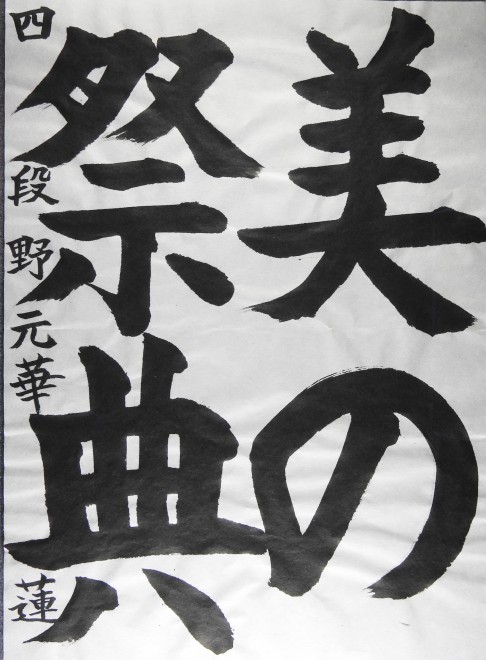 美の
祭典
四段 野元華蓮